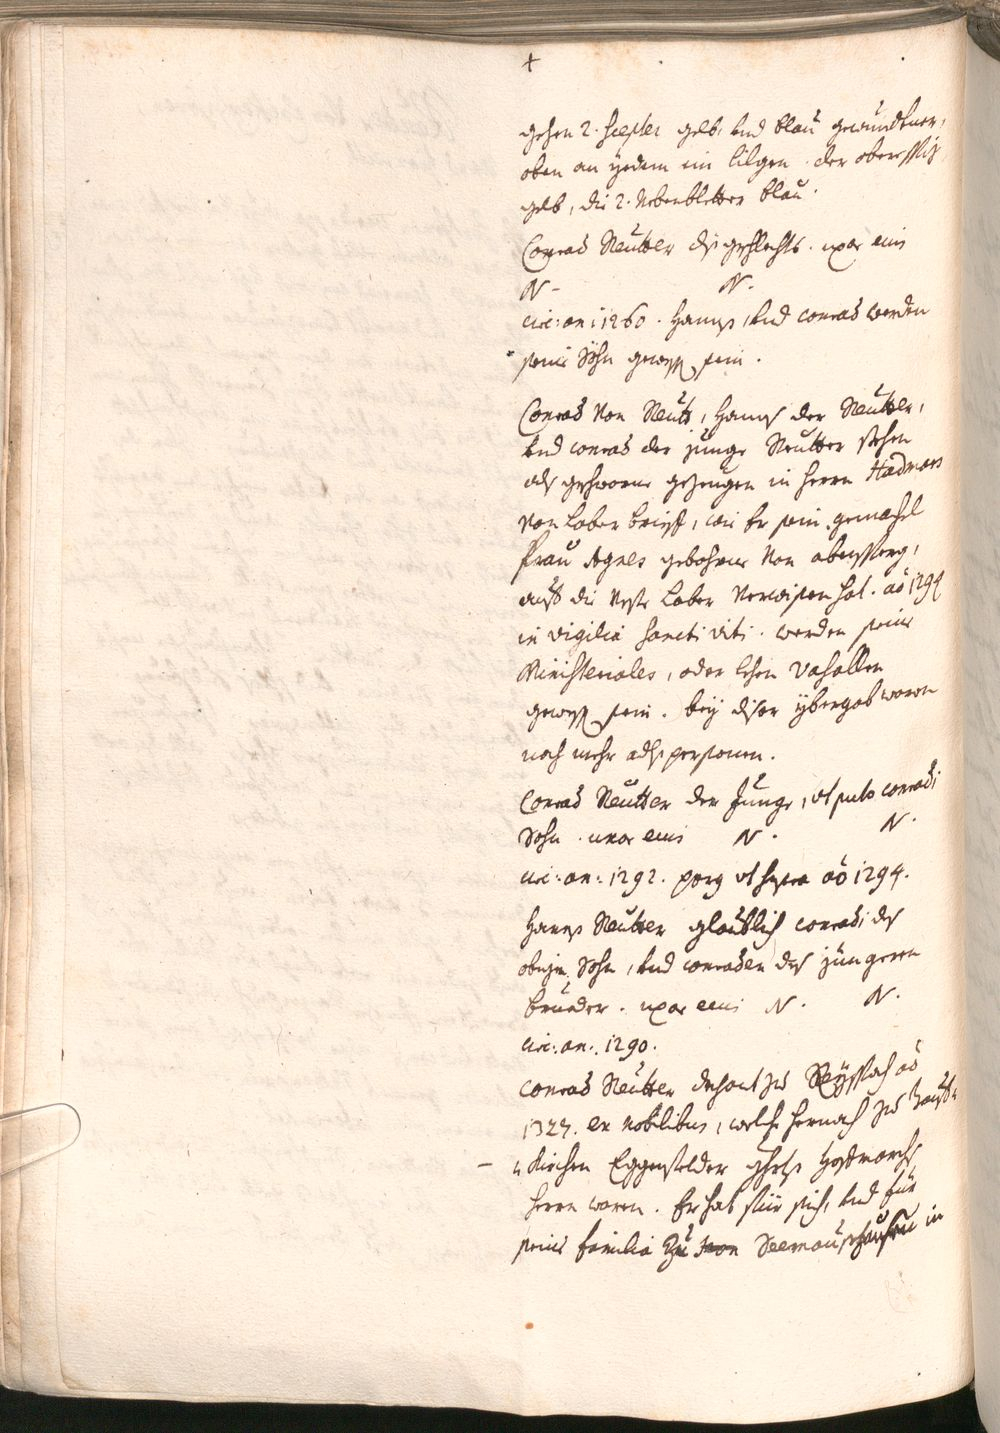 +
gehen 2. Scepter gelb, und blau gewundtner,
oben an yedem ein lilgen. der obere Spiz
gelb, die 2. Nebenbletter blau.
Conrad Neutter diß geschlechts. uxor eius
N. N.
circ: an: 1260. Hannß, und conrad werden
seine Söhn gewesst sein.
Conrad Von Neutt, Hannß der Neutter,
und conrad der junge Neutter stehen
als geschworne gezeugen in Herrn Hadmars
von Laber brieff, wie Er sein gemachel
frau Agnes gebohrne Von abensperg,
auff die Veste Laber Verwisen hat. aō 1294
in vigilia Sancti Viti. werden seine
Ministeriales, oder lehen Vasallen
gewesst sein. bey diser ybergab waren
noch mehr adls personen.
Conrad Neutter der Junge, ut puto conradi
Sohn. uxor eius N. N.
circ: an: 1292. ut supra aō 1294.
Hannß Neutter glaublich conradi des
obigen Sohn, und conraden des jüngeren
brueder. uxor eius N. N.
circ: an: 1290.
conrad Neutter dechant zu aō
1327. ex nobilibus, welche hernach zu
kirchen Eggenfelder ghrts Hoffmarchs
herrn waren. Er hat für sich, und für
seine familia Zu Seemanshausen in